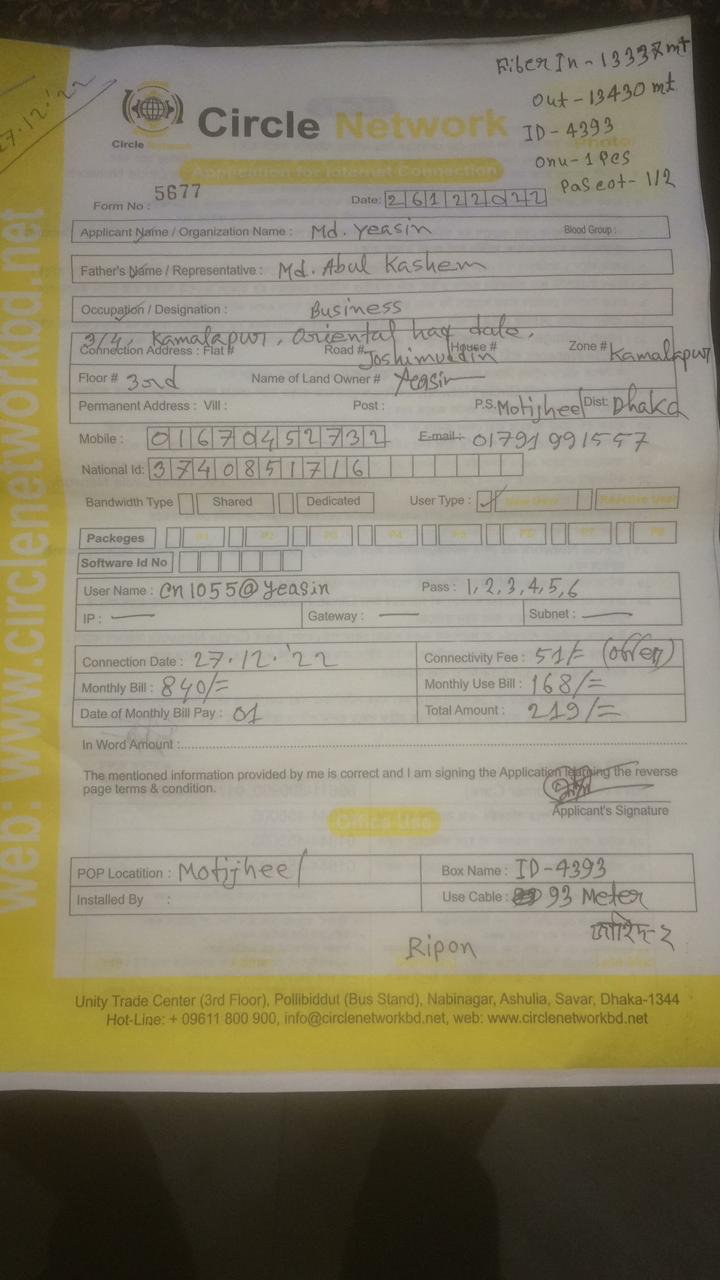 27.12.'22
Fiber In - 13337 mt
Out - 13430 mt
ID - 4393
Onu - 1 Pcs
Circle Network
Circle Network
Photo
Application for Internet Connection
Form No : 5677
Date: 26122022
Applicant Name / Organization Name : Md. Yeasin Blood Group :
Father's Name / Representative : Md. Abul Kashem
Occupation / Designation : Business
3/4, Kamalapur, Oriental haq
Connection Address : Flat # Road # Joshimuddin House # Zone # Kamalapur
Floor # 3rd Name of Land Owner # Yeasin
Permanent Address : Vill : Post : P.S. Motijheel Dist: Dhaka
Mobile : 01670452732 E-mail : 01791991557
National Id: 3740851716
Bandwidth Type Shared Dedicated User Type : ✓ New User Reactive User
Packeges P1 P2 P3 P4 P5 P6 P7 P8
Software Id No
User Name : cn1055@yeasin Pass : 1,2,3,4,5,6
IP : — Gateway : — Subnet : —
Connection Date : 27.12.'22 Connectivity Fee : 51/= (offer)
Monthly Bill : 840/= Monthly Use Bill : 168/=
Date of Monthly Bill Pay : 01 Total Amount : 219/=
In Word Amount :
The mentioned information provided by me is correct and I am signing the Application learning the reverse
page terms & condition.
Applicant's Signature
Office Use
POP Locatition : Motijheel Box Name : ID-4393
Installed By : Use Cable : 93 Meter
Ripon
Unity Trade Center (3rd Floor), Pollibiddut (Bus Stand), Nabinagar, Ashulia, Savar, Dhaka-1344
Hot-Line: + 09611 800 900, info@circlenetworkbd.net, web: www.circlenetworkbd.net
web: www.circlenetworkbd.net